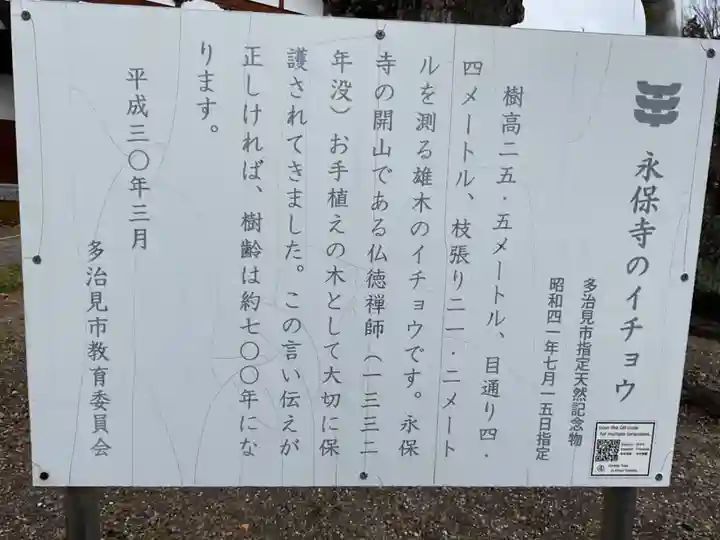 永保寺のイチョウ
多治見市指定天然記念物
昭和四一年七月一五日指定
樹高二五・五メートル、目通り四・
四メートル、枝張り二一・二メート
ルを測る雄木のイチョウです。永保
寺の開山である仏徳禅師（一三三二
年没）お手植えの木として大切に保
護されてきました。この言い伝えが
正しければ、樹齢は約七〇〇年にな
ります。
平成三〇年三月
多治見市教育委員会
Scan the QR code
for multiple languages.